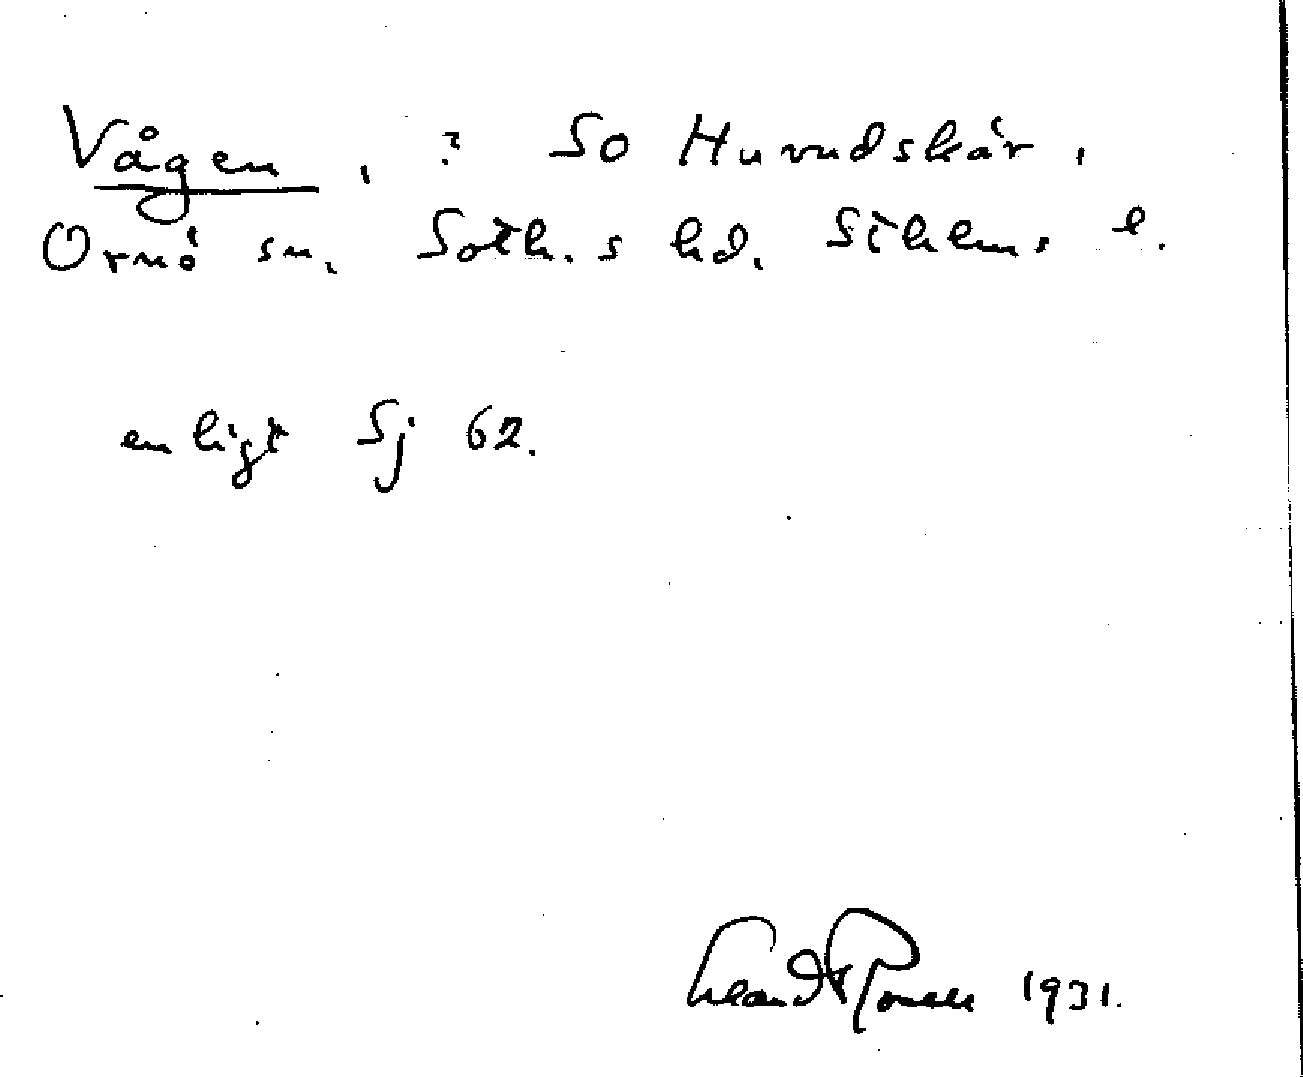 Vågen, : SO Huvudskär,
Ornö sn, Soth.s hd. Sthlm, l.
enligt Sj 62.
1931.